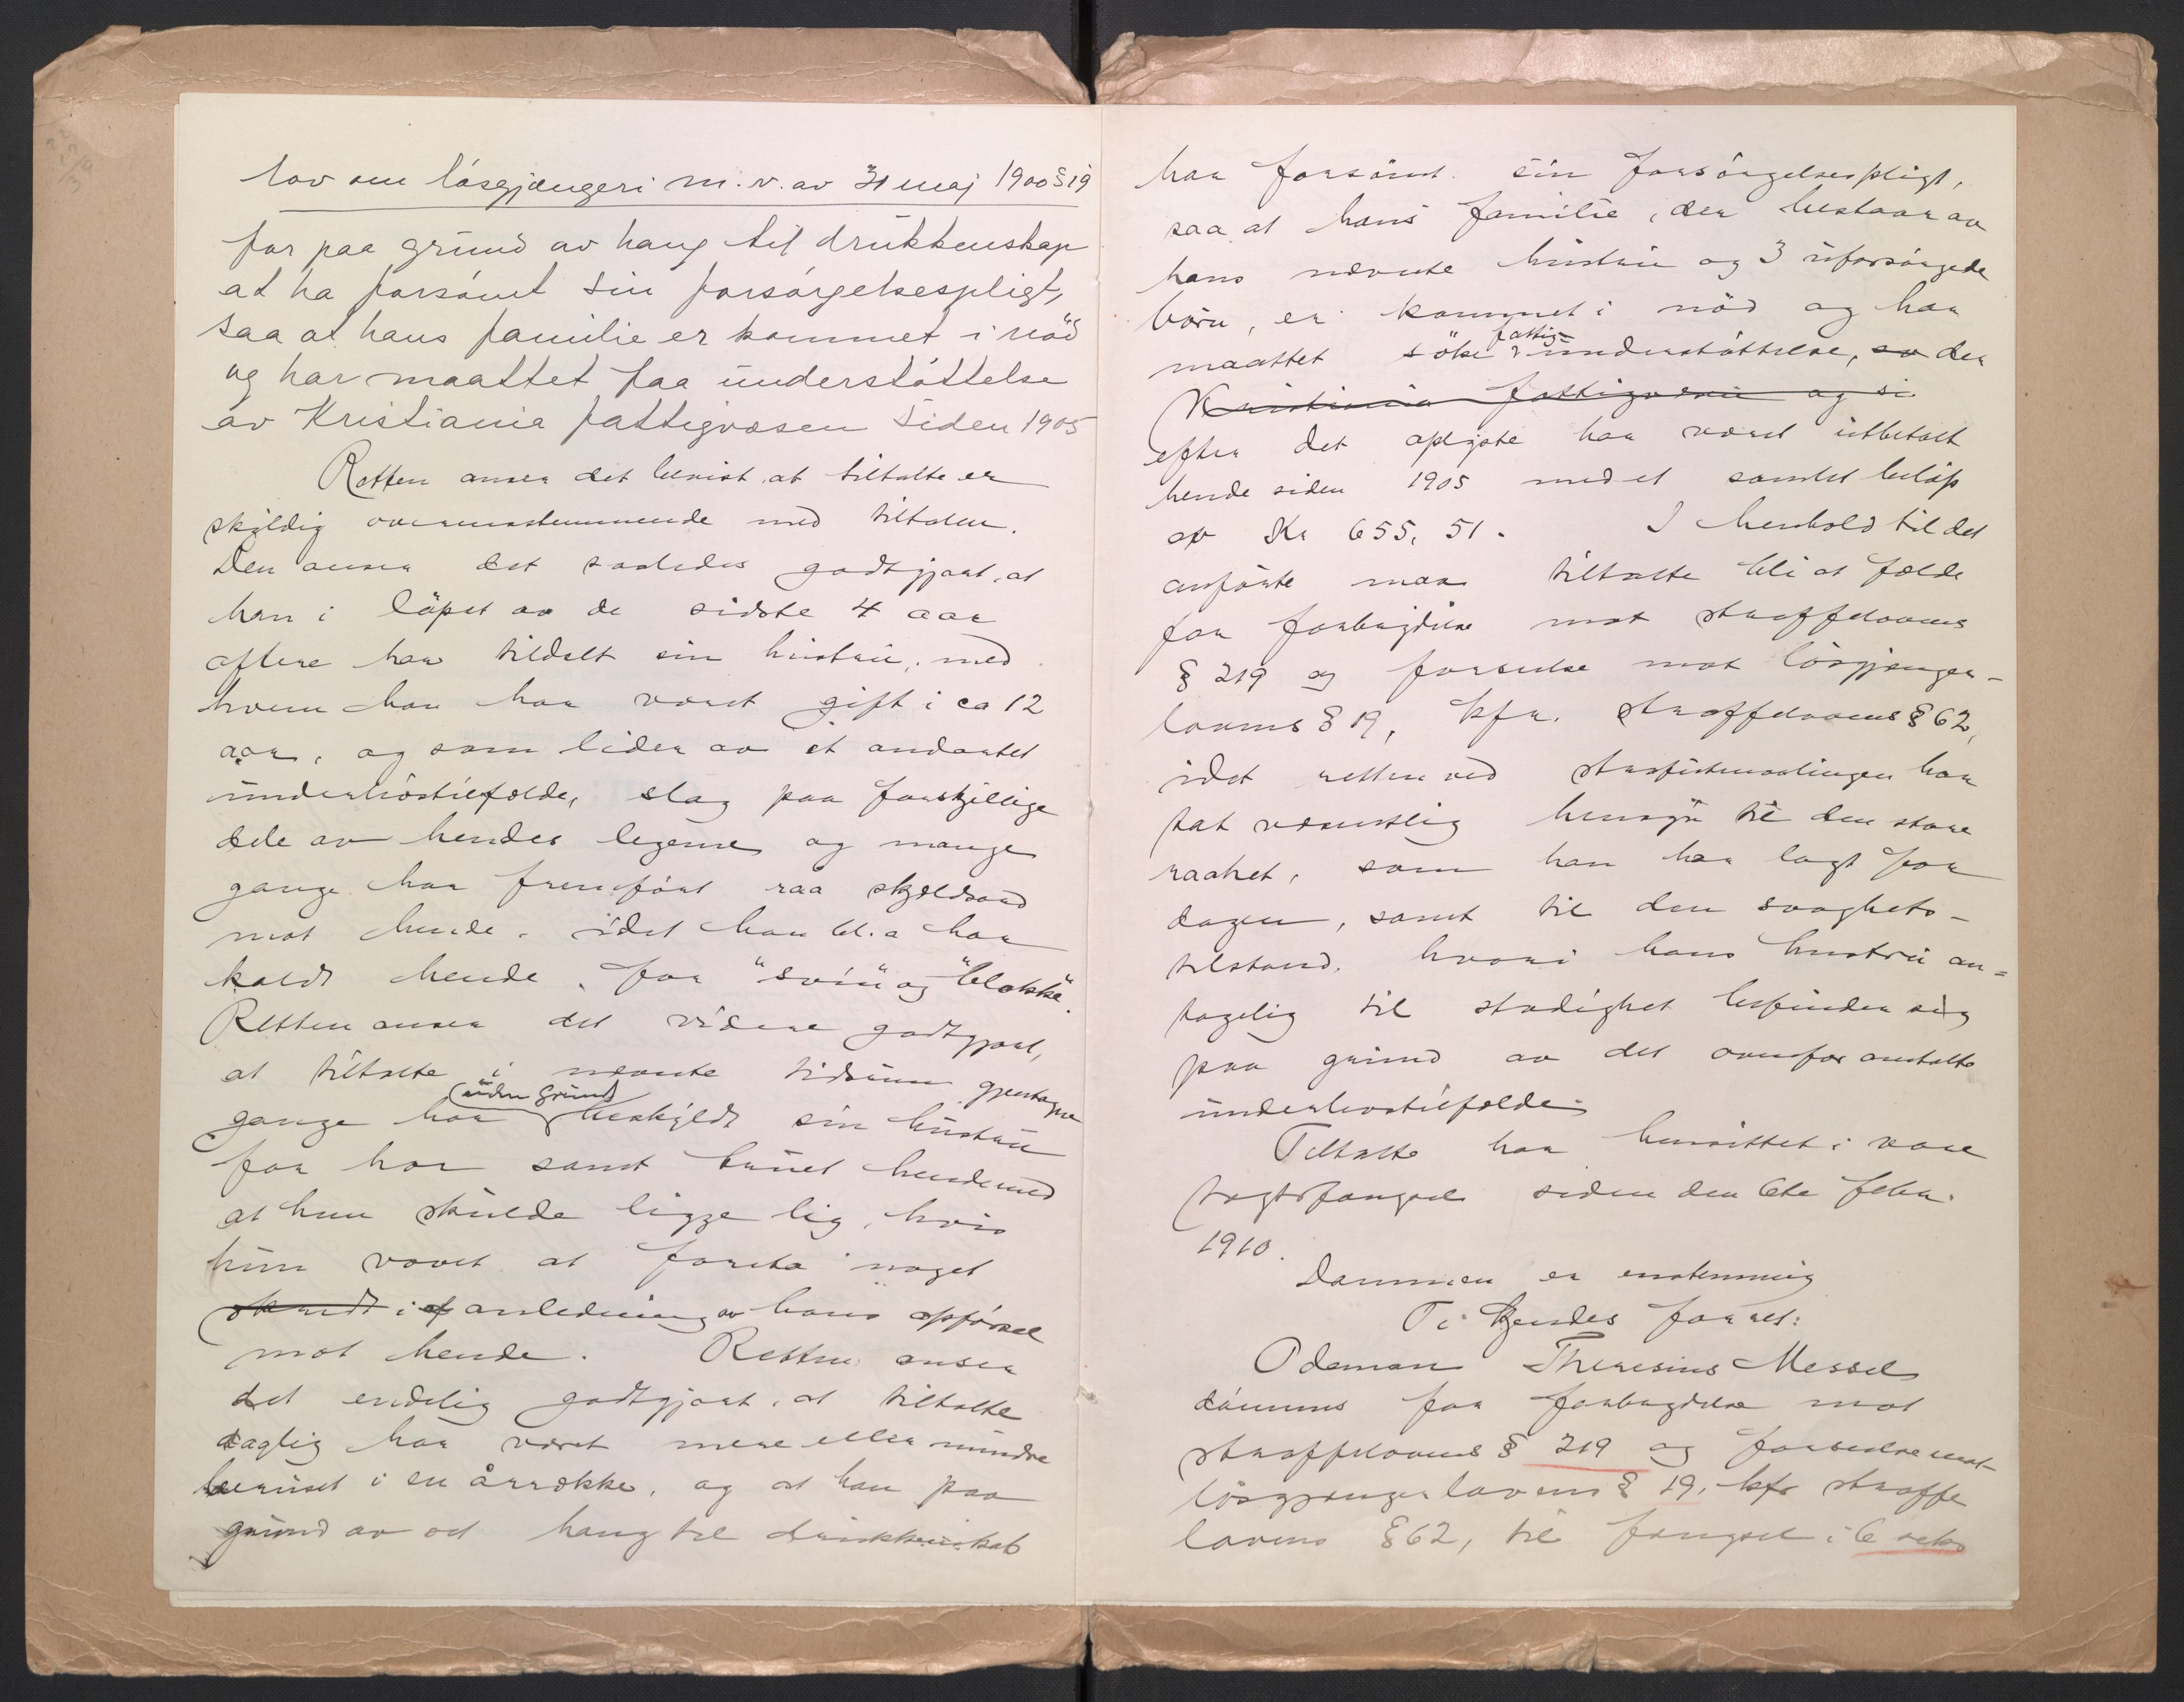 Lov om løsgjængeri m.v. av 31 maj 1900 § 19
for paa grund av hang til drukkenskap
at ha forsømt sin forsørgelsespligt,
saa at hans familie er kommet i nød
og har maattet faa understøttelse
av Kristiania fattigvæsen siden 1905
Retten anser det bevist, at tiltalte er
skyldig overensstemmende med tiltalen.
Den anser det saaledes godtgjort, at
han i løpet av de sidste 4 aar
oftere har tildelt sin hustru, med
hvem han har været gift i ca 12
aar, og som lider av et andartet
underlivstilfælde, slag paa forskjellige
dele av hendes legeme og mange
gange har fremført raa skjældsord
mot hende, idet han bl.a har
kaldt hende for "svin" og "blokke".
Retten anser det videre godtgjort,
at tiltalte i nævnte tidsrum gjentagne
gange har (uden grund) beskyldt sin hustru
for hor samt truet hende med
at hun skulde ligge lig, hvis
hun vovet at foreta noget
i anledning av hans opførsel
mot hende. Retten anser
det endelig godtgjort, at tiltalte
daglig har været mere eller mindre
beruset i en årrække, og at han paa
grund av hang til drukkenskab
har forsømt sin forsørgelsespligt,
saa at hans familie, der bestaar av
hans nævnte hustru og 3 uforsørgede
børn, er kommet i nød og har
maattet søke fattig-understøttelse, so der
Kristiania fattigvæsen og si
efter det oplyste har været utbetalt
hende siden 1905 med et samlet beløp
av Kr 655,51. I henhold til det
anførte maa tiltalte bli at fælde
for forbrydelse mot straffelovens
§ 219 og forseelse mot løsgjænger-
lovens § 19, kfr. straffelovens § 62,
idet retten ved straffutmaalingen har
tat væsentlig hensyn til den store
raahet, som han har lagt for
dagen, samt til den svagheds-
tilstand, hvori hans hustru an=
tagelig til stadighet befinder sig
paa grund av det ovenfor omtalte
underlivstilfælde.
Tiltalte har hensittet i vare
tægtsfængsel siden den 6te febr.
1910.
Dommen er enstemmig
Ti kjendes for ret:
Odeman Theresius Messel
dømmes for forbrydelse mot
straffelovens § 219 og forseelse mot
løsgjængerlovens § 19, kfr straffe
lovens § 62, til fængsel i 6 seks